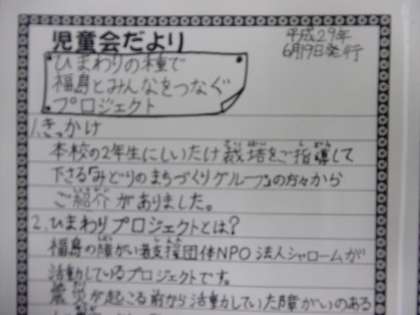 児童会だより
平成29年
6月19日発行
ひまわりの種で
福島とみんなをつなぐ
プロジェクト
1.きっかけ
本校の2年生にしいたけ栽培をご指導して
下さる『みどりのまちづくりグループ』の方々から
ご紹介がありました。
2.ひまわりプロジェクトとは?
福島の障がい者支援団体NPO法人シャロームが
活動しているプロジェクトです。
震災が起こる前から活動していた障がいのある